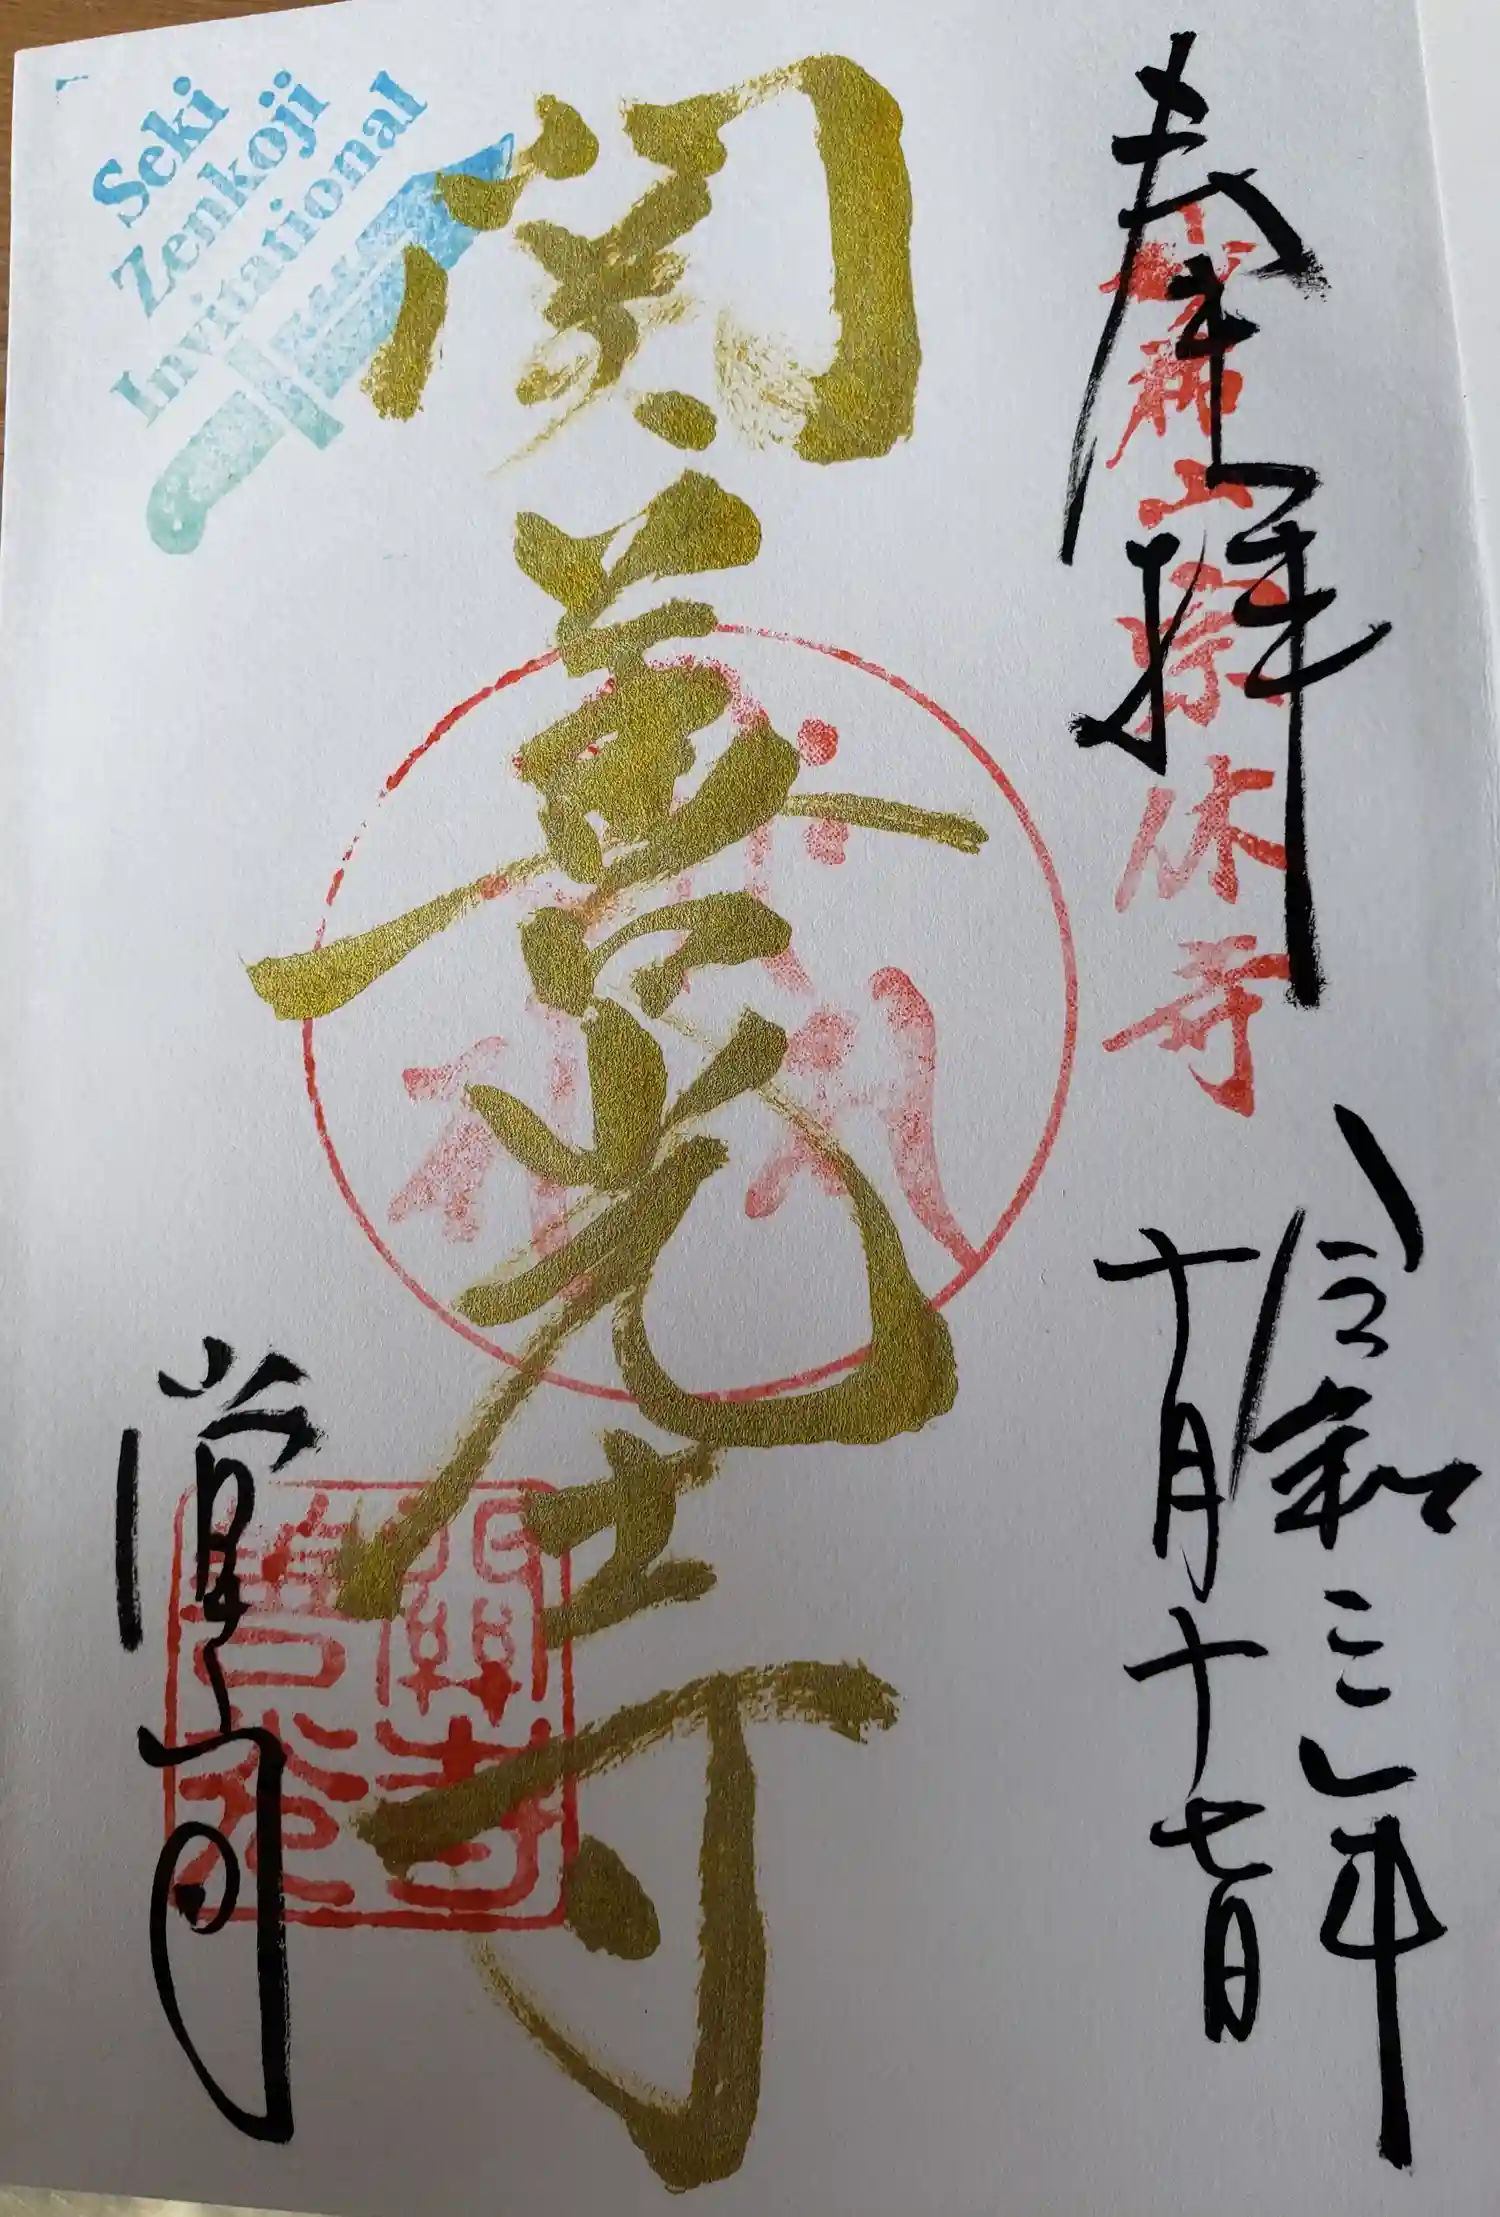 奉拝
山宗休寺
令和三年
十月十七日
関善光寺
Seki
Zenkoji
Invitational
關善光寺